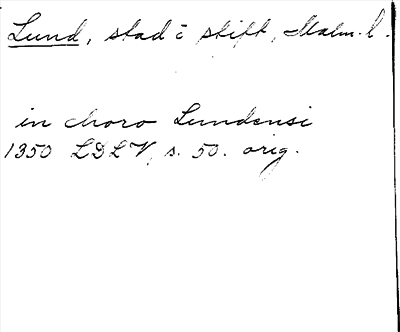 Lund, stad i stift, Malm. l.
in choro Lundensi
1350 LDLV, s. 50. orig.